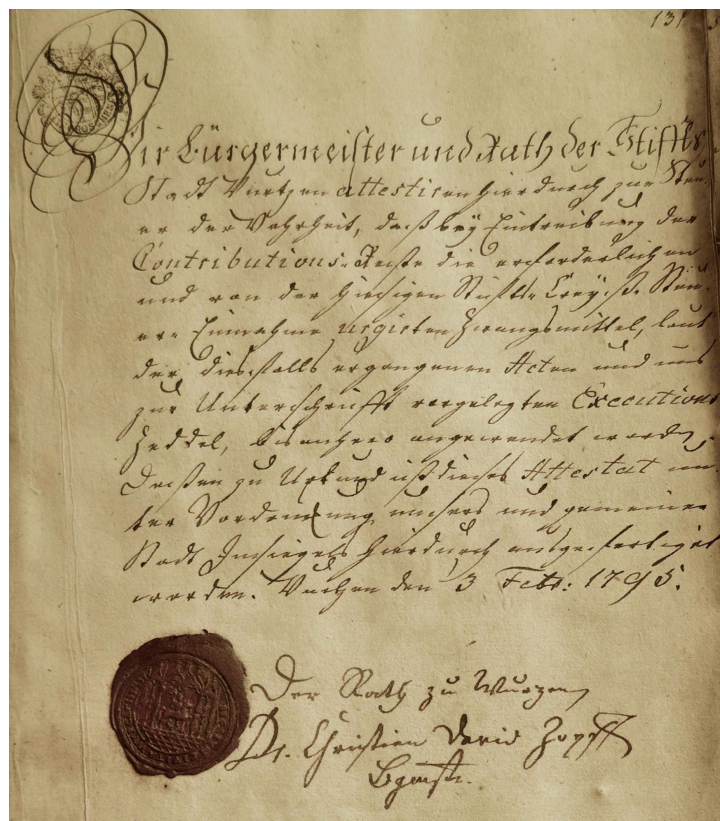 131
Wir Bürgermeister und Rath der Stiffts
Stadt Wurtzen attestiren hierdurch zur Steu-
er der Wahrheit, daß bey Eintreibung der
Contributions-Reste die erforderlichen
und von der hiesigen Stiffts Creyß-Steu-
er-Einnahme urgirten Zwangsmittel, laut
der diesfalls ergangenen Acten und uns
zur Unterschrifft vorgelegten Executions
Zeddel, bis anhero angewendet worden,
Deßen zu Urkund ist dieses Attestat un-
ter Vordruckung unsers und gemeiner
Stadt Insiegels hierdurch ausgefertiget
worden. Wurtzen den 3 Febr: 1795.
Der Rath zu Wurzen
Dr. Christian David Zopff
Bgmstr.